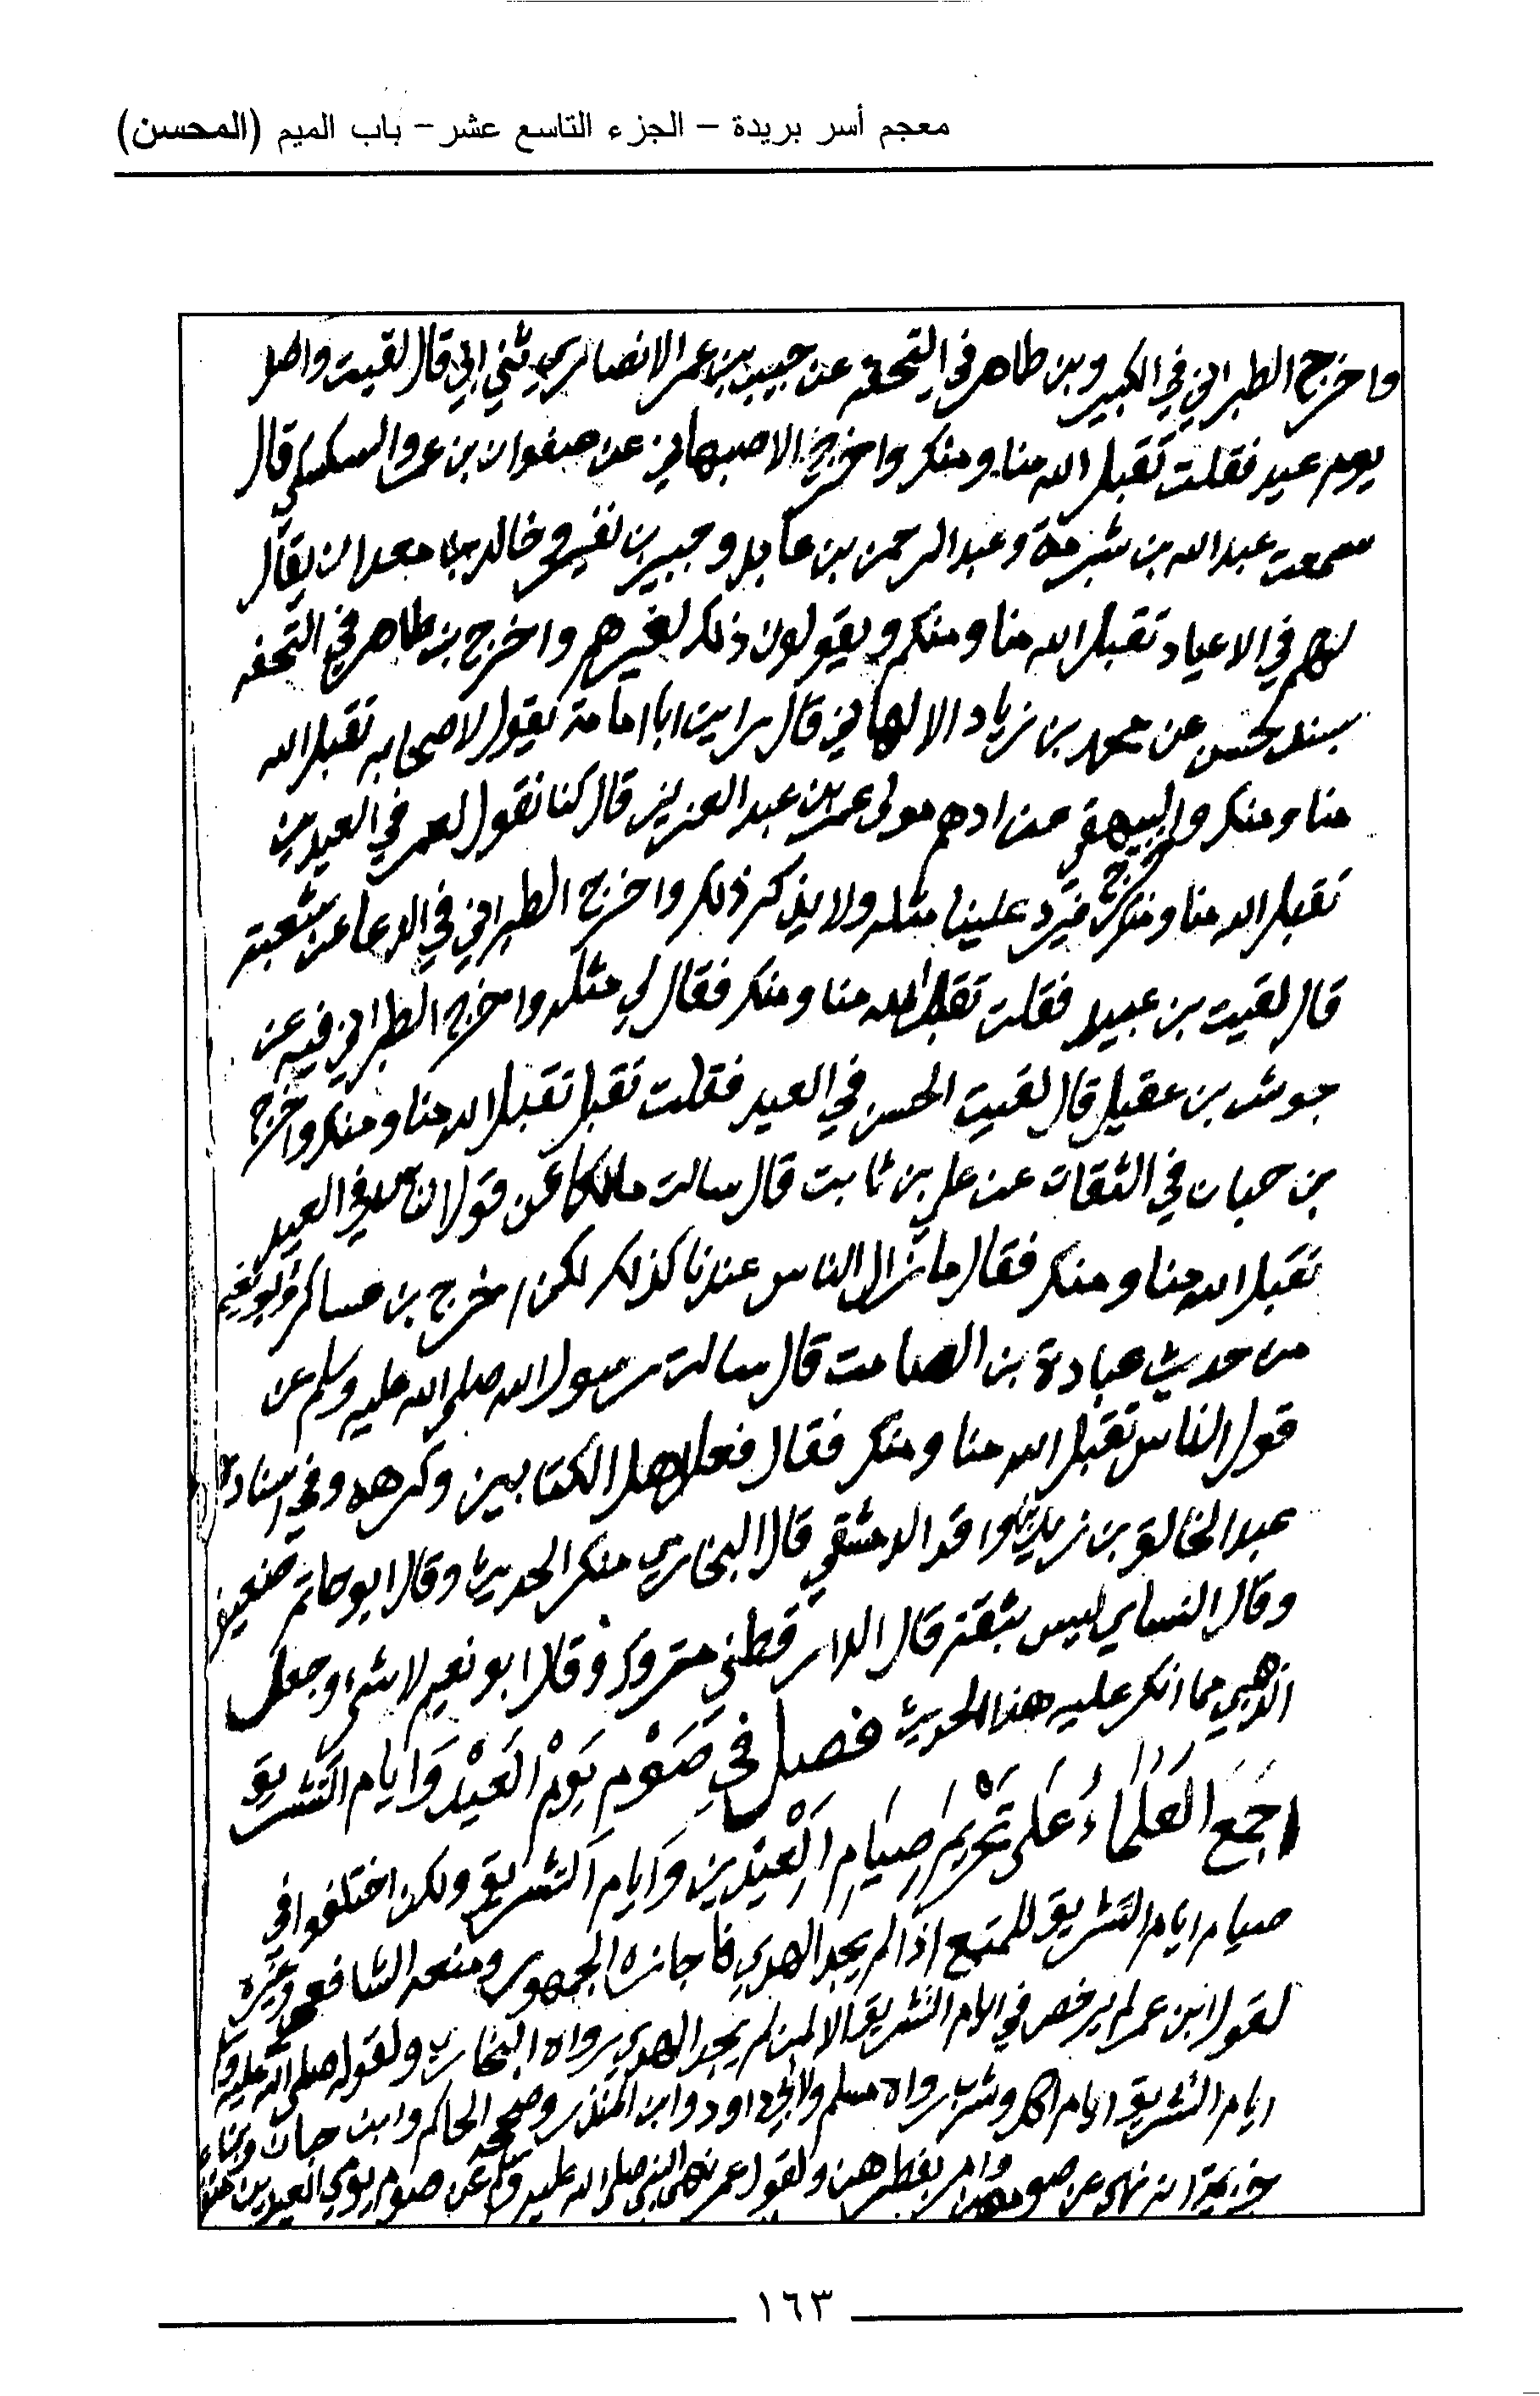 معجم أسر بريدة – الجزء التاسع عشر – باب الميم (المحسن)
واخرج الطبراني في الكبير وبن طاهر في التحفه عن حبيب بن عمر الانصاري ثني ابي قال لقيت واصلا
يوم عيد فقلت تقبل الله منا ومنكم واخرج الاصبهاني عن صفوان بن عمرو السكسكي قال
سمعت عبدالله بن وعبدالرحمن بن عايد وجبير بن نفير وخالد بن معدان يقال
لهم في الاعياد تقبل الله منا ومنكم ويقولون ذلك لغيرهم واخرج بن طاهر في التحفه
بسند حسن عن محمد بن زياد الالهاني قال رايت ابا امامة يقول لاصحابه تقبل الله
منا ومنكم والبيهقي عن ادهم مولى عمر بن عبدالعزيز قال كنا نقول لعمر في العيدين
تقبل الله منا ومنكم فيرد علينا مثله ولا ينكر ذلك واخرج الطبراني في الدعا عن شعبة
قال لقيت بن عبيد فقلت تقبل الله منا ومنكم فقال لي مثله واخرج الطبراني فيه عن
حوشب بن عقيل قال لقيت الحسن في العيد فقلت تقبل تقبل الله منا ومنكم واخرج
بن حبان في الثقات عن علي بن ثابت قال سالت مالكا عن قول الناس في العيد
تقبل الله منا ومنكم فقال مازال الناس عندنا كذلك لكن اخرج بن عساكر
من حديث عبادة بن الصامت قال سالت رسول الله صلى الله عليه وسلم عن
قول الناس تقبل الله منا ومنكم فقال فعل اهل الكتابين وكرهه وفي اسناده
عبدالخالق بن زيد بن واقد الدمشقي قال البخاري منكر الحديث وقال ابو حاتم ضعيف
وقال النساي ليس بثقة قال الدارقطني متروك وقال ابو نعيم لا شيء وجعل
الذهبي مما انكر عليه هذا الحديث فصل في صَوْم يَوْم العَيْد وَايام التشريق
اجَمَعَ العُلَمَاءُ عَلى تَحْرِيم صِيَامِ الْعِيْدِين وَايام التشريق ولكن اختلفوا في
صيام ايام التشريق للمتمتع اذا لم يجد الهدي فاجازه الجمهور ومنعه الشافعي وغيره
لقول ابن عمر لم يرخص في ايام التشريق الا لمن لم يجد الهدي رواه البخاري ولقوله صلى الله عليه وسلم
ايام التشريق ايام اكل وشرب رواه مسلم ولابي داود وابن المنذر وصححه الحاكم وابن حبان وبن
خزيمة انه نهى عن صومهن وامر بفطرهن ولقول عمر نهى النبي صلى الله عليه وسلم عن صوم يومي العيدين
١٦٣